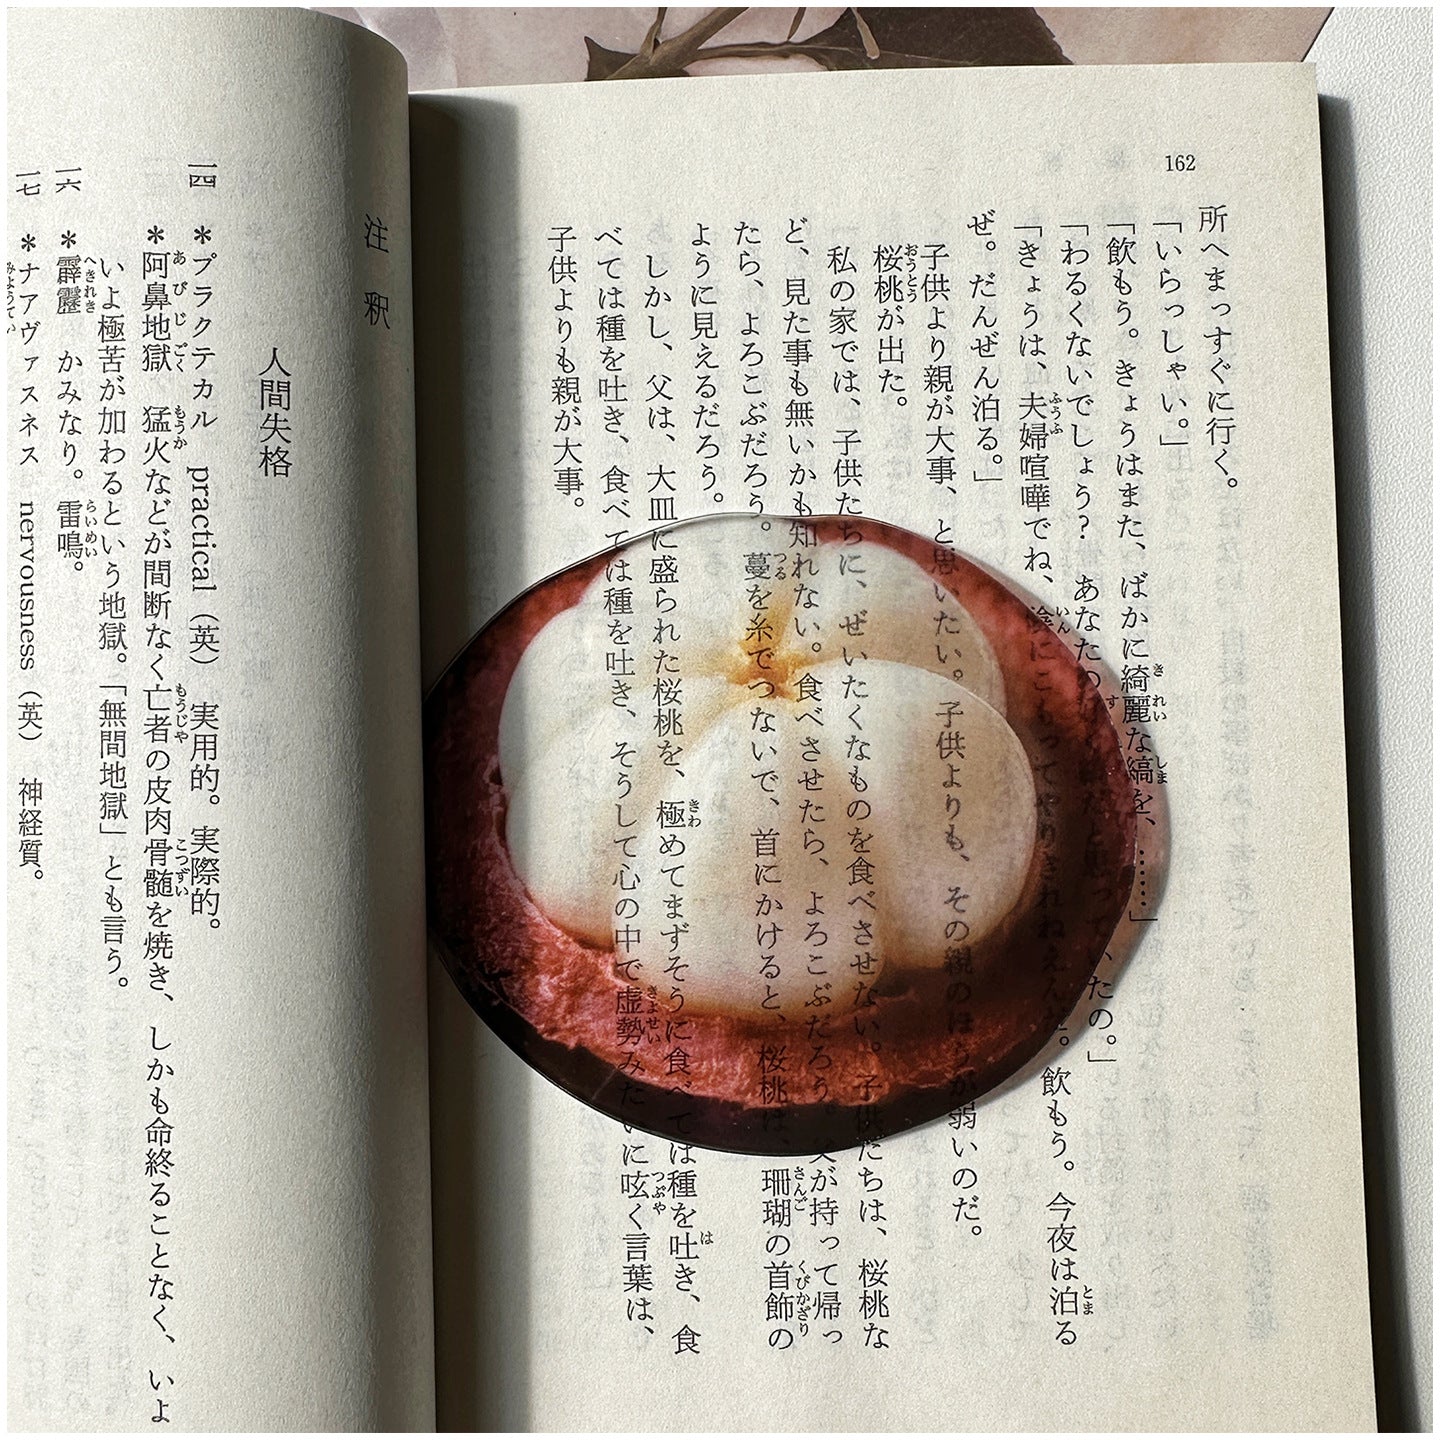 162
所へまっすぐに行く。
「いらっしゃい。」
「飲もう。きょうはまた、ばかに綺麗な縞を、……」
「わるくないでしょう? あなたの す く と思っていたの。」
「きょうは、夫婦喧嘩でね、陰にこもってやりきれねえんだ。飲もう。今夜は泊る
ぜ。だんぜん泊る。」
子供より親が大事、と思いたい。子供よりも、その親のほうが弱いのだ。
桜桃が出た。
私の家では、子供たちに、ぜいたくなものを食べさせない。子供たちは、桜桃な
ど、見た事も無いかも知れない。食べさせたら、よろこぶだろう。父が持って帰っ
たら、よろこぶだろう。蔓を糸でつないで、首にかけると、桜桃は、珊瑚の首飾の
ように見えるだろう。
しかし、父は、大皿に盛られた桜桃を、極めてまずそうに食べては種を吐き、食
べては種を吐き、食べては種を吐き、そうして心の中で虚勢みたいに呟く言葉は、
子供よりも親が大事。
注釈
人間失格
一四 *プラクテカル practical(英) 実用的。実際的。
*阿鼻地獄 猛火などが間断なく亡者の皮肉骨髄を焼き、しかも命終ることなく、いよ
いよ極苦が加わるという地獄。「無間地獄」とも言う。
一六 *霹靂 かみなり。雷鳴。
一七 *ナアヴァスネス nervousness(英) 神経質。